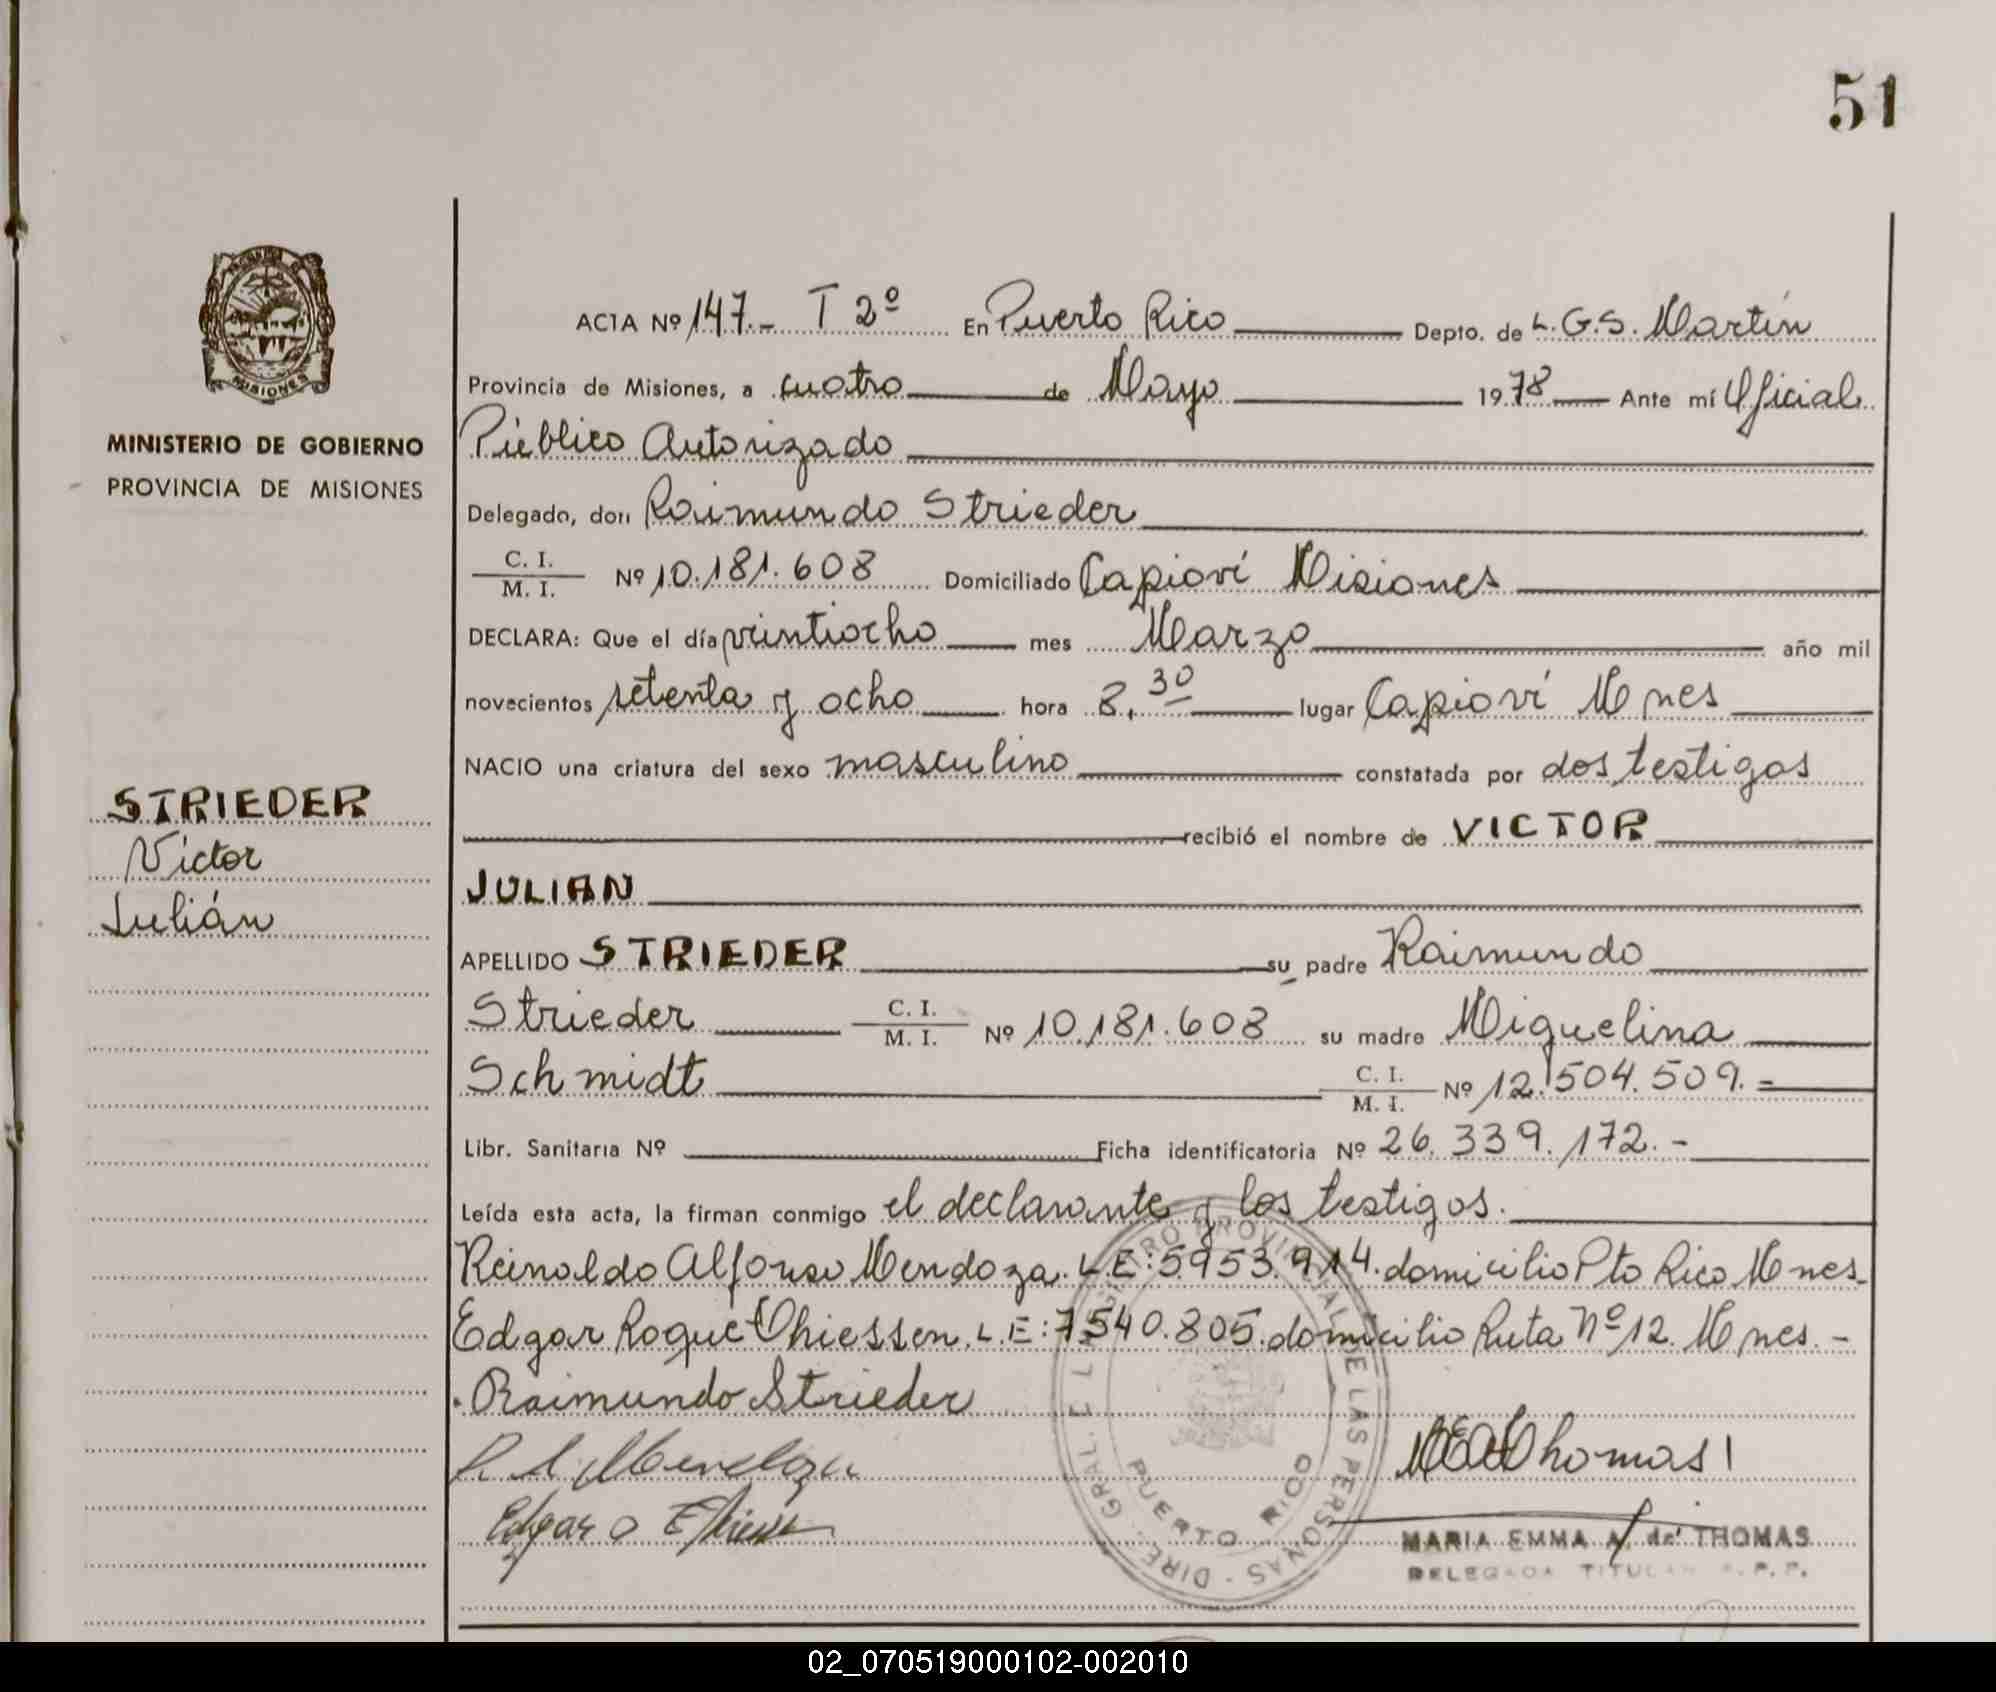 51
MISIONES
MINISTERIO DE GOBIERNO
PROVINCIA DE MISIONES
STRIEDER
Víctor
Julián
ACTA Nº 147.- T 2º En Puerto Rico Depto. de L.G.S. Martín
Provincia de Misiones, a cuatro de Mayo 1978 Ante mí Oficial
Público Autorizado
Delegado, don Raimundo Strieder
C. I. / M. I. Nº 10.181.608 Domiciliado Capioví Misiones
DECLARA: Que el día veintiocho mes Marzo año mil
novecientos setenta y ocho hora 8,30 lugar Capioví Mnes
NACIO una criatura del sexo masculino constatada por dos testigos
recibió el nombre de VICTOR
JULIAN
APELLIDO STRIEDER su padre Raimundo
Strieder C. I. / M. I. Nº 10.181.608 su madre Miguelina
Schmidt C. I. / M. I. Nº 12.504.509.=
Libr. Sanitaria Nº Ficha identificatoria Nº 26.339.172.-
Leída esta acta, la firman conmigo el declarante y los testigos.
Reinaldo Alfonso Mendoza. L.E:5953.914. domicilio Pto Rico Mnes.
Edgar Roque Thiessen. L.E:7.540.805. domicilio Ruta Nº 12. Mnes.-
Raimundo Strieder
R A Mendoza
Thomas
Edgar
MARIA EMMA A. de THOMAS
DELEGADA TITULAR R. P. P.
PUERTO RICO
02_070519000102-002010